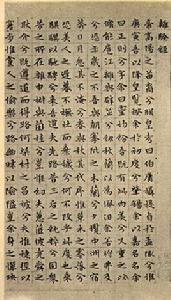 離騷經
帝高陽之苗裔兮朕皇考曰伯庸攝提貞于孟陬兮惟
庚寅吾以降皇覽揆余于初度兮肇錫余以嘉名名余
曰正則兮字余曰靈均紛吾既有此內美兮又重之以
脩能扈江離與辟芷兮紉秋蘭以為佩汩余若將弗及
兮恐年歲之不吾與朝搴阰之木蘭兮夕攬中洲之宿
莽日月忽其不淹兮春與秋其代序惟草木之零落兮
恐美人之遲暮不撫壯而棄穢兮何不改乎此度也乘
騏驥以馳騁兮來吾導夫先路昔三后之純粹兮固眾
芳之所在雜申椒與菌桂兮豈維紉夫蕙茝彼堯舜之
耿介兮既遵道而得路何桀紂之昌披兮夫唯捷徑以
窘步惟黨人之偷樂兮路幽昧以險隘豈余身之憚